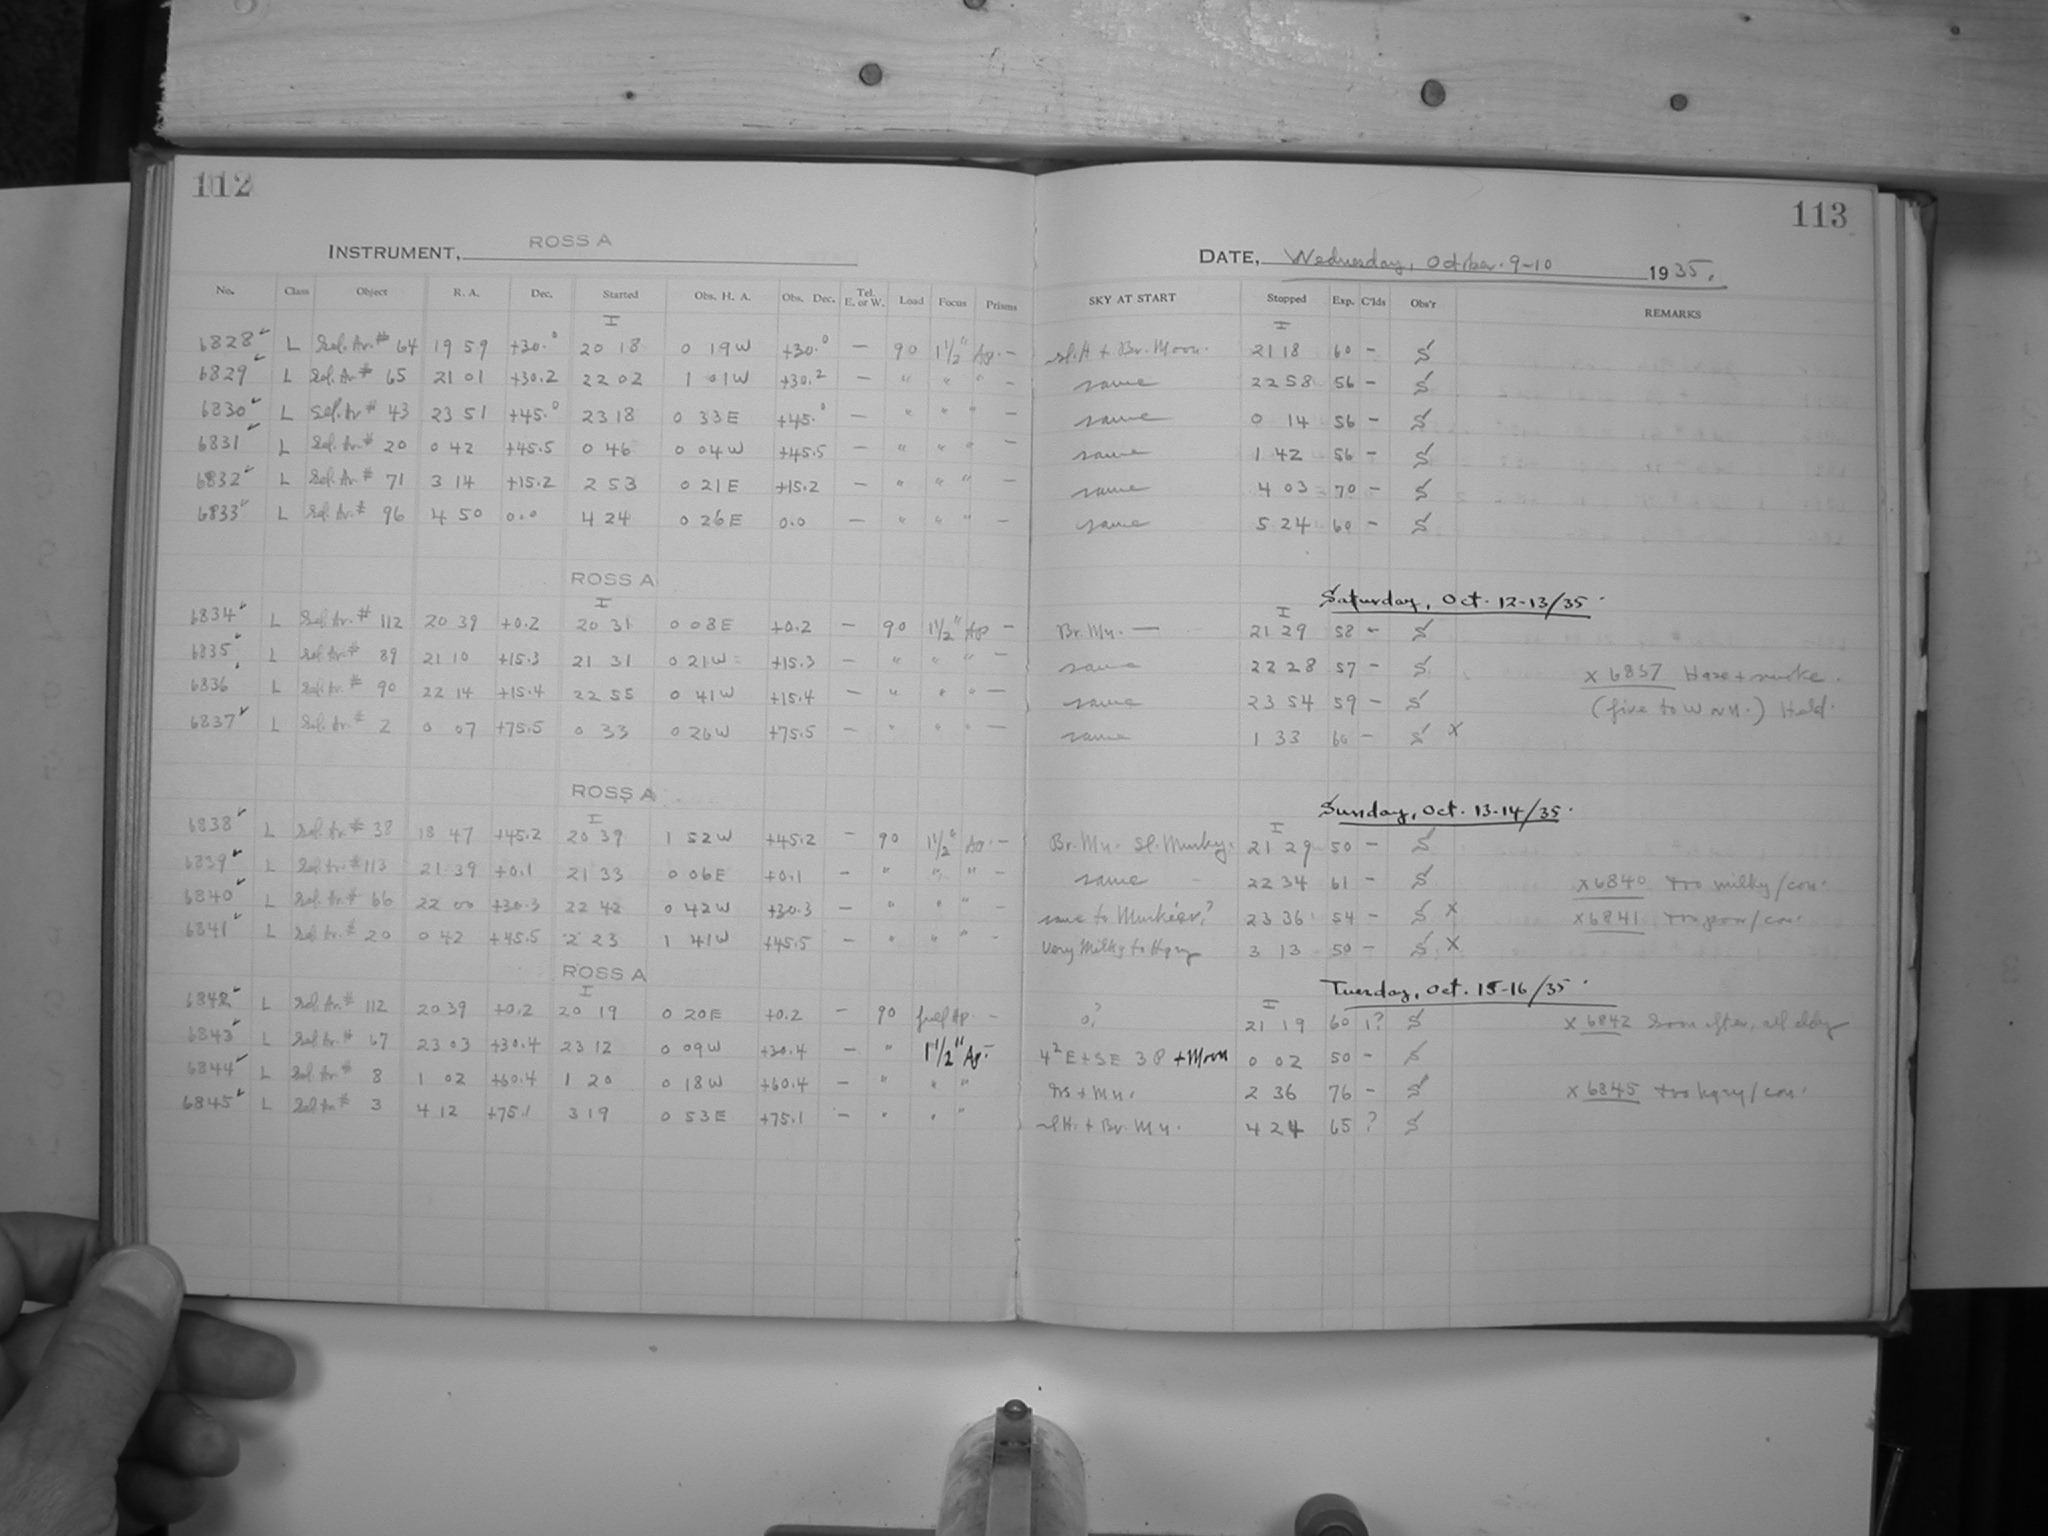 112
113
INSTRUMENT, ROSS A
DATE, Wednesday, October 9-10 1935.
No. Class Object R. A. Dec. Started Obs. H. A. Obs. Dec. Tel. E. or W. Load Focus Prisms SKY AT START Stopped Exp. C'lds Obs'r REMARKS
I I
6828 ✓ L Sel. Ar. # 64 19 59 +30.0 20 18 0 19 W +30.0 — 90 1½" Ap. — sl. H + Br. Moon. 21 18 60 — S
6829 ✓ L Sel. Ar. # 65 21 01 +30.2 22 02 1 01 W +30.2 — " " " — same 22 58 56 — S
6830 ✓ L Sel. Ar. # 43 23 51 +45.0 23 18 0 33 E +45.0 — " " " — same 0 14 56 — S
6831 ✓ L Sel. Ar. # 20 0 42 +45.5 0 46 0 04 W +45.5 — " " " — same 1 42 56 — S
6832 ✓ L Sel. Ar. # 71 3 14 +15.2 2 53 0 21 E +15.2 — " " " — same 4 03 70 — S
6833 ✓ L Sel. Ar. # 96 4 50 0.0 4 24 0 26 E 0.0 — " " " — same 5 24 60 — S
ROSS A
Saturday, Oct. 12-13/35.
I I
6834 ✓ L Sel. Ar. # 112 20 39 +0.2 20 31 0 08 E +0.2 — 90 1½" Ap — Br. Mn. — 21 29 58 — S
6835 ✓ L Sel. Ar. # 89 21 10 +15.3 21 31 0 21 W +15.3 — " " " — same 22 28 57 — S x 6837 Haze + smoke.
6836 L Sel. Ar. # 90 22 14 +15.4 22 55 0 41 W +15.4 — " " " — same 23 54 59 — S (fire to W NW.) Held.
6837 ✓ L Sel. Ar. # 2 0 07 +75.5 0 33 0 26 W +75.5 — " " " — same 1 33 60 — S x
ROSS A
Sunday, Oct. 13-14/35.
I I
6838 ✓ L Sel. Ar. # 38 18 47 +45.2 20 39 1 52 W +45.2 — 90 1½" Ap. — Br. Mn. Sl. Murky. 21 29 50 — S
6839 ✓ L Sel. Ar. # 113 21 39 +0.1 21 33 0 06 E +0.1 — " " " — same 22 34 61 — S
6840 ✓ L Sel. Ar. # 66 22 00 +30.3 22 42 0 42 W +30.3 — " " " — same to Murkier? 23 36 54 — S x x 6840 too milky/con.
6841 ✓ L Sel. Ar. # 20 0 42 +45.5 2 23 1 41 W +45.5 — " " " — Very Milky to Hazy 3 13 50 — S x x 6841 too poor/con.
ROSS A
Tuesday, Oct. 15-16/35.
I I
6842 ✓ L Sel. Ar. # 112 20 39 +0.2 20 19 0 20 E +0.2 — 90 full Ap. — 0? 21 19 60 1? S x 6842 Soon after, all cldy
6843 ✓ L Sel. Ar. # 67 23 03 +30.4 23 12 0 09 W +30.4 — " 1½" Ap. — E + SE + Moon 0 02 50 — S
6844 ✓ L Sel. Ar. # 8 1 02 +60.4 1 20 0 18 W +60.4 — " " " + Mn. 2 36 76 — S x 6845 too hazy/con.
6845 ✓ L Sel. Ar. # 3 4 12 +75.1 3 19 0 53 E +75.1 — " " " sl H. + Br. Mn. 4 24 65 ? S